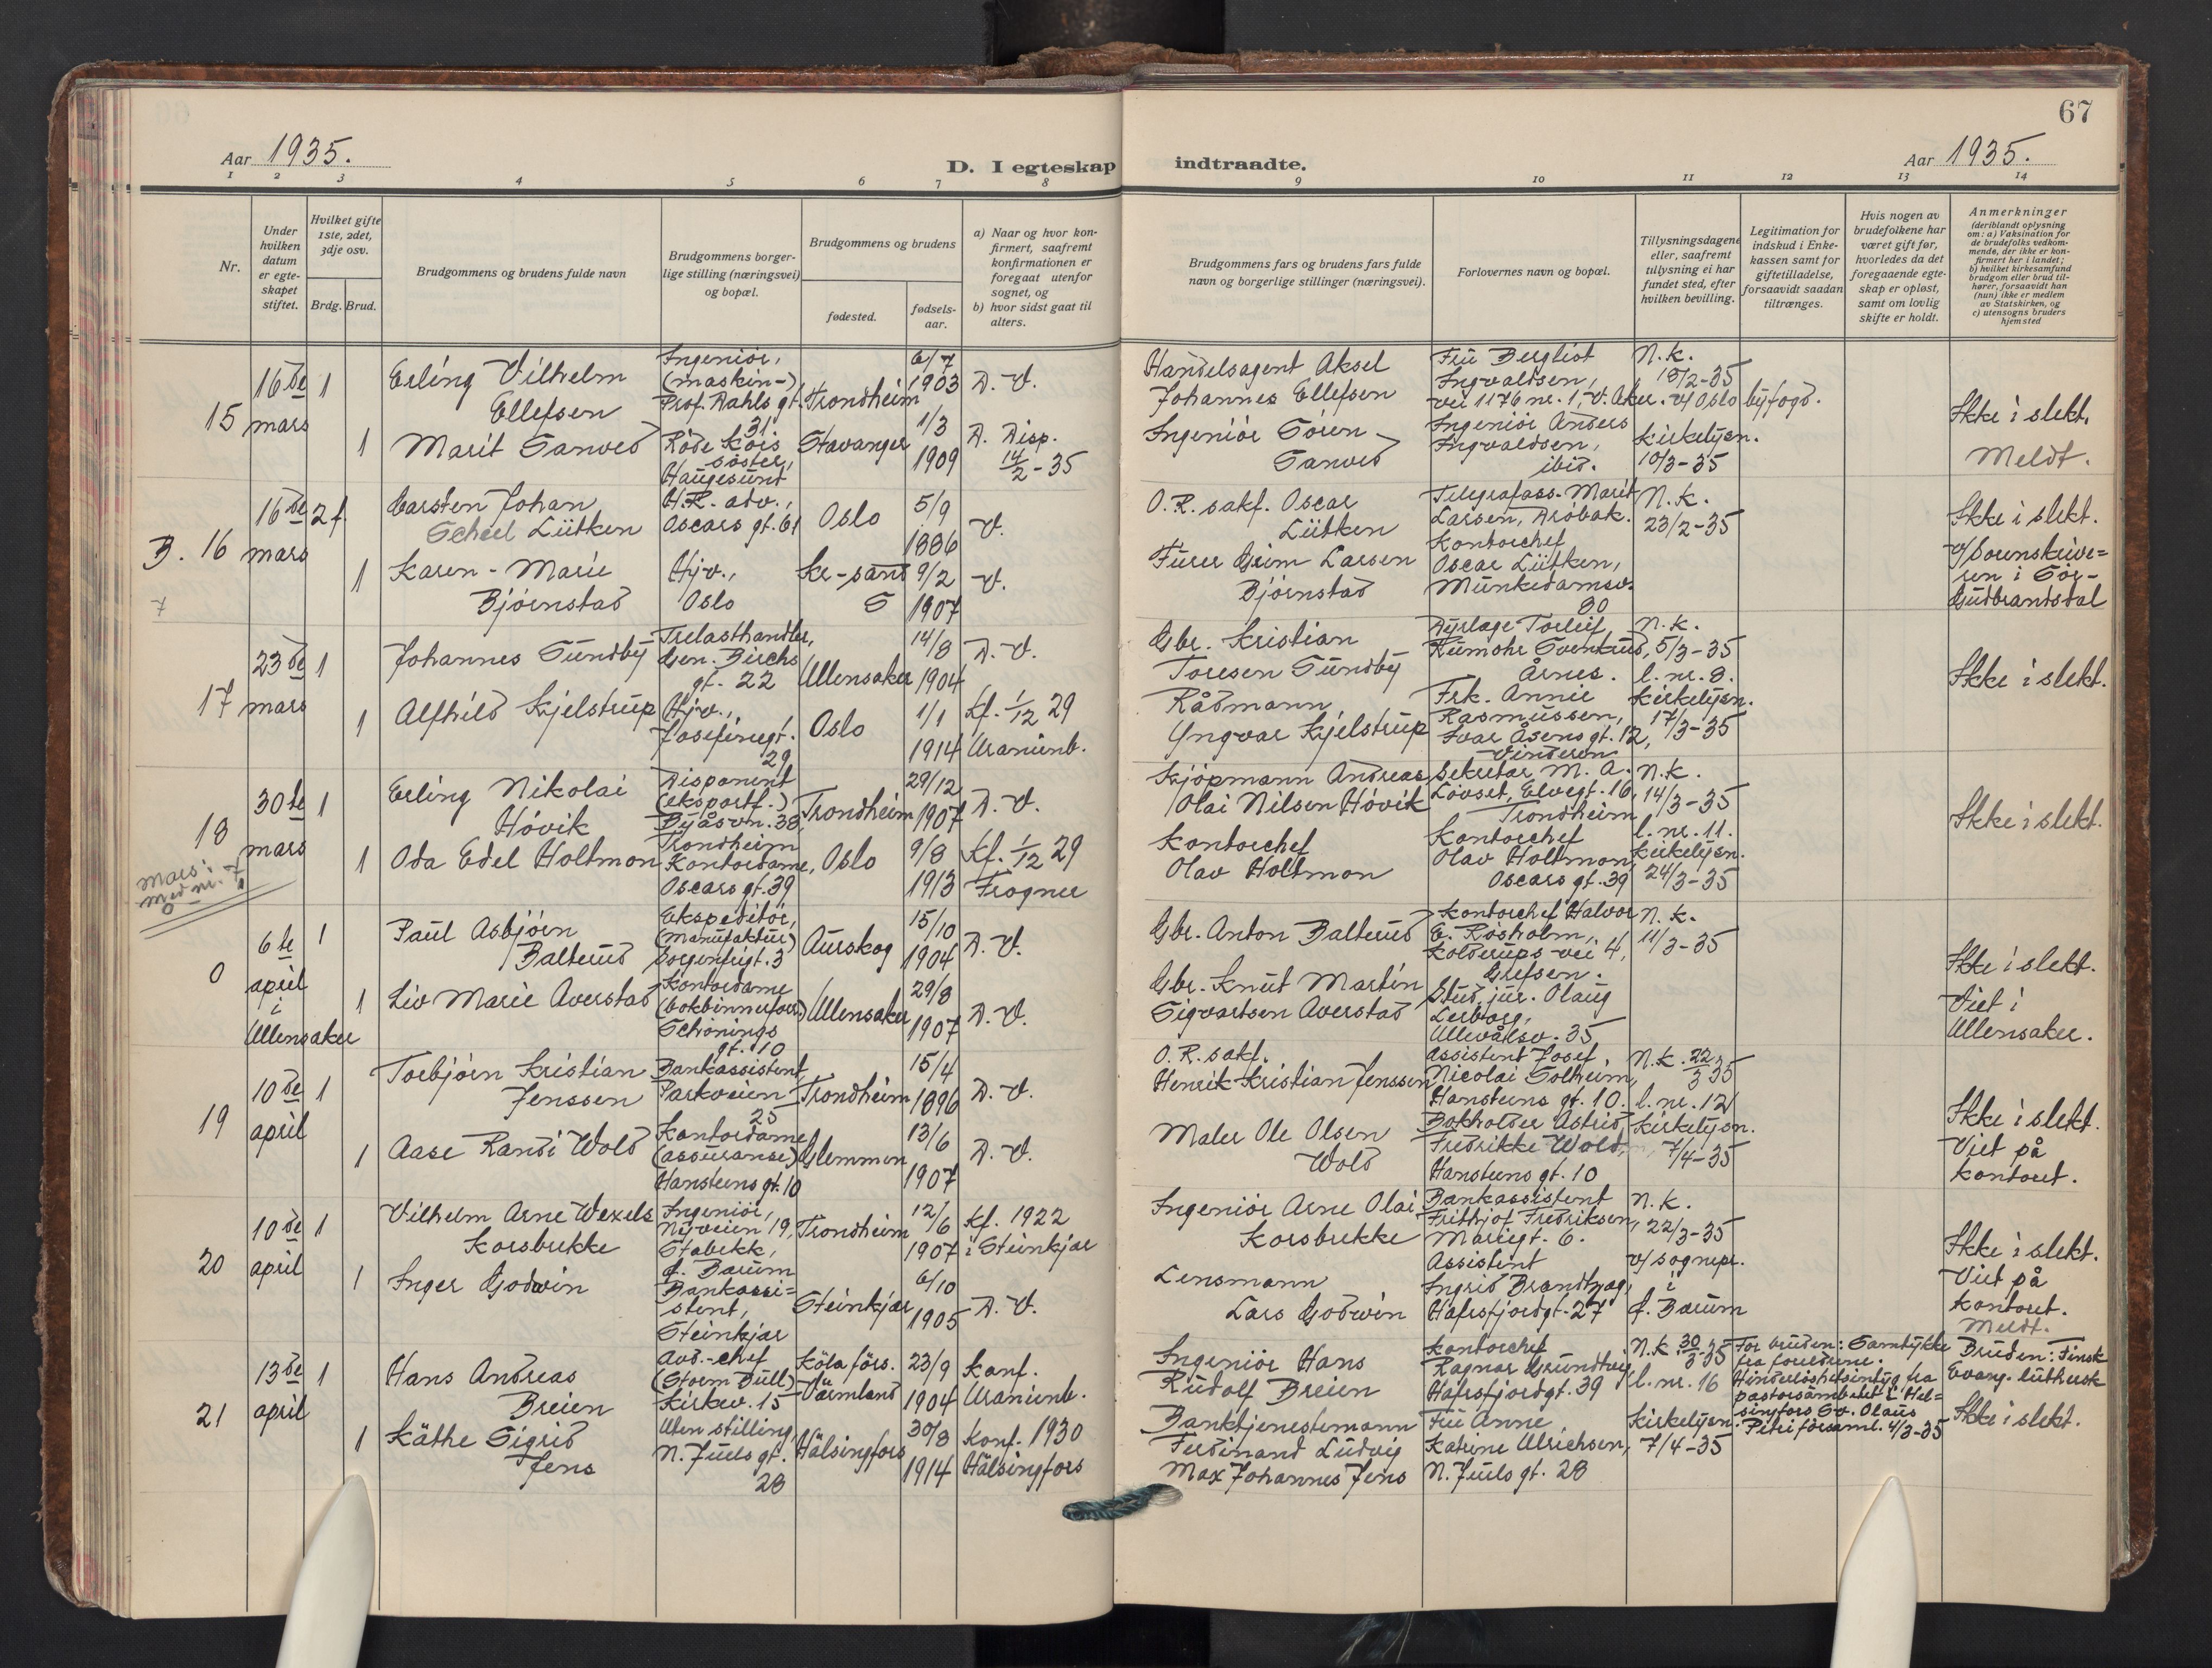 67
Aar 1935.
D. I egteskap indtraadte.
Aar 1935.
1 2 3 4 5 6 7 8 9 10 11 12 13 14
Nr.
Under hvilken datum er egteskapet stiftet.
Hvilket gifte 1ste, 2det, 3dje osv.
Brdg. Brud.
Brudgommens og brudens fulde navn
Brudgommens borgerlige stilling (næringsvei) og bopæl.
Brudgommens og brudens
fødested.
fødselsaar.
a) Naar og hvor konfirmert, saafremt konfirmationen er foregaat utenfor sognet, og
b) hvor sidst gaat til alters.
Brudgommens fars og brudens fars fulde navn og borgerlige stillinger (næringsvei).
Forlovernes navn og bopæl.
Tillysningsdagene eller, saafremt tillysning ei har fundet sted, efter hvilken bevilling.
Legitimation for indskud i Enkekassen samt for giftetilladelse, forsaavidt saadan tiltrænges.
Hvis nogen av brudefolkene har været gift før, hvorledes da det foregaaende egteskap er opløst, samt om lovlig skifte er holdt.
Anmerkninger
(deriblandt oplysning om: a) Vaksination for de brudefolks vedkommende, der ikke er konfirmert her i landet; b) hvilket kirkesamfund brudgom eller brud tilhører, forsaavidt han (hun) ikke er medlem av Statskirken, og c) utensogns bruders hjemsted
15
16de mars
1
Erling Vilhelm Ellefsen
Ingeniør, (maskin-) Prof. Dahls gt. 31
Trondheim
6/7 1903
D. V.
Handelsagent Aksel Johannes Ellefsen
Fru Bergliot Ingvaldsen, vei 1176 nr. 1, V. Aker.
N.k. 18/2-35 v/ Oslo byfogd.
Ikke i slekt.
Meldt.
1
Marit Sanved
Røde Kors søster, Haugesund
Stavanger
1/3 1909
D. Disp. 14/2-35
Ingeniør Søren Sanved
Ingeniør Anders Ingvaldsen, ibid.
Kirkelysn. 10/3-35
B. 16
7
16de mars
2 f.
Carsten Johan Scheel Lütken
H.R. adv., Oscars gt. 61
Oslo
5/9 1886
V.
O.R. sakf. Oscar Lütken
Telegrafass. Marit Larsen, Drøbak.
N.k. 23/2-35
Ikke i slekt.
v/ Sorenskriveren i Sør-Gudbrandsdal
1
Karen-Marie Bjørnstad
Hjv., Oslo
Kr-sand S
9/2 1907
V.
Furer Grim Larsen Bjørnstad
Kontorchef Oscar Lütken, Munkedamsv. 80
17
23de mars
1
Johannes Sundby
Trelasthandler, Gen. Birchs gt. 22
Ullensaker
14/8 1904
D. V.
Gbr. Kristian Toresen Sundby
Dyrlæge Torleif Rumohr Svenkrud, Årnes.
N.k. 5/3-35 l.nr. 8.
Ikke i slekt.
1
Alfhild Kjelstrup
Hjv., Josefinegt. 29
Oslo
1/1 1914
Kf. 1/12 29 Uranienb.
Rådmann Yngvar Kjelstrup
Frk. Annie Rasmussen, Ivar Åsens gt. 12, Vinderen
Kirkelysn. 17/3-35
18
mars: med nr. 7
30te mars
1
Erling Nikolai Høvik
Disponent (eksportf.) Byåsvn. 38, Trondheim
Trondheim
29/12 1907
D. V.
Kjøpmann Andreas Olai Nilsen Høvik
Sekretær M. A. Løvset, Elvegt. 16, Trondheim
N.k. 14/3-35 l.nr. 11.
Ikke i slekt.
1
Oda Edel Holtmon
Kontordame, Oscars gt. 39
Oslo
9/8 1913
Kf. 1/12 29 Frogner
Kontorchef Olav Holtmon
Kontorchef Olav Holtmon, Oscars gt. 39
Kirkelysn. 24/3-35
0
6te april i Ullensaker
1
Paul Asbjørn Balterud
Ekspeditør, (manufaktur) Sorgenfrigt. 3
Aurskog
15/10 1904
D. V.
Gbr. Anton Balterud
Kontorchef Halvor E. Rosholm, Kolderups vei 4, Grefsen.
N.k. 11/3-35
Ikke i slekt.
Viet i Ullensaker.
1
Liv Marie Averstad
Kontordame (bokbinnerforr.) Schønings gt. 10
Ullensaker
29/8 1907
D. V.
Gbr. Knut Martin Sigvartsen Averstad
Stud. jur. Olaug Lerborg, Ullevålsv. 35
19
10de april
1
Torbjørn Kristian Jenssen
Bankassistent, Parkveien 25
Trondheim
15/4 1896
D. V.
O.R. sakf. Henrik Kristian Jenssen
Assistent Josef Nicolai Solheim, Hansteens gt. 10.
N.k. 22/3 35 l.nr. 12
Ikke i slekt.
Viet på kontoret.
1
Aase Randi Wold
Kontordame (assuranse) Hansteens gt. 10
Glemmen
13/6 1907
D. V.
Maler Ole Olsen Wold
Bokholder Astrid Fredrikke Wold, Hansteens gt. 10
Kirkelysn. 7/4-35
20
10de april
1
Vilhelm Arne Wexels Korsbrekke
Ingeniør, Nyveien 19, Stabekk, Ø. Bærum
Trondheim
12/6 1907
Kf. 1922 i Steinkjær
Ingeniør Arne Olai Korsbrekke
Bankassistent Frithjof Fredriksen, Mariegt. 6.
N.k. 22/3-35 v/ sognepr. i Ø. Bærum
Ikke i slekt.
Viet på kontoret.
Meldt.
1
Inger Godwin
Bankassistent, Steinkjær
Steinkjær
6/10 1905
D. V.
Lensmann Lars Godwin
Assistent Ingrid Brandtzæg, Hafrsfjordgt. 27
21
13de april
1
Hans Andreas Breien
Avd.-chef (Storm Bull) Kirkev. 15
Köla förs. Värmland
23/9 1904
Konf. Uranienb.
Ingeniør Hans Rudolf Breien
Kontorchef Ragnar Grundtvig, Hafrsfjordgt. 39
N.k. 30/3-35 l.nr. 16
For bruden: Samtykke fra foreldrene. Hinderløshetsintyg fra pastorsämbetet i Helsingfors Sv. Olaus Petri församl. 4/3-35
Bruden: Finsk Evang. luthersk
Ikke i slekt.
1
Käthe Sigrid Jens
Uten stilling, N. Juels gt. 28
Hälsingfors
30/8 1914
Konf. 1930 Hälsingfors
Banktjenestemann Ferdinand Ludvig Max Johannes Jens
Fru Anne Katrine Ulrichsen, N. Juels gt. 28
Kirkelysn. 7/4-35